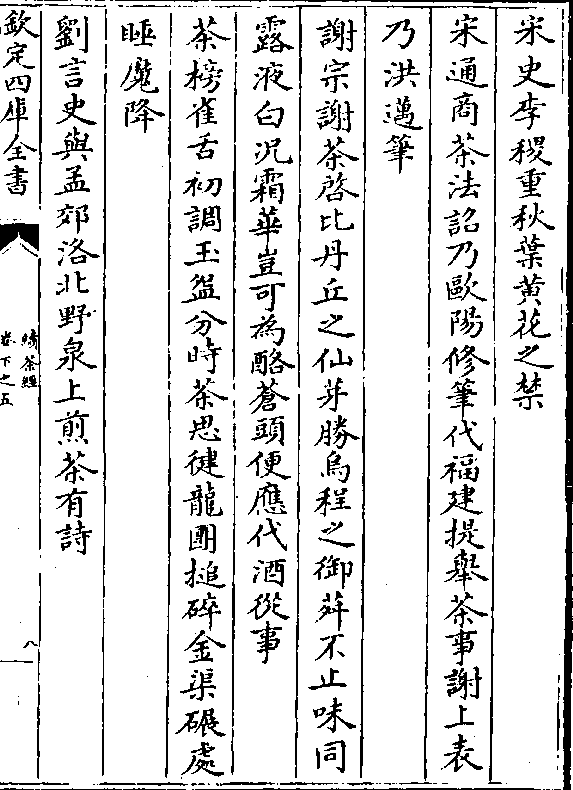 宋史李稷重秋葉黄花之禁
宋通商茶法詔乃歐陽修筆代福建提舉茶事謝上表
乃洪邁筆
謝宗謝茶啓比丹丘之仙芽勝烏程之御荈不止味同
露液白况霜華豈可為酪蒼頭便應代酒從事
茶榜雀舌初調玉盌分時茶思健龍團搥碎金渠碾處
睡魔降
劉言史與孟郊洛北野泉上煎茶有詩
欽定四庫全書
續茶經
卷下之五
八